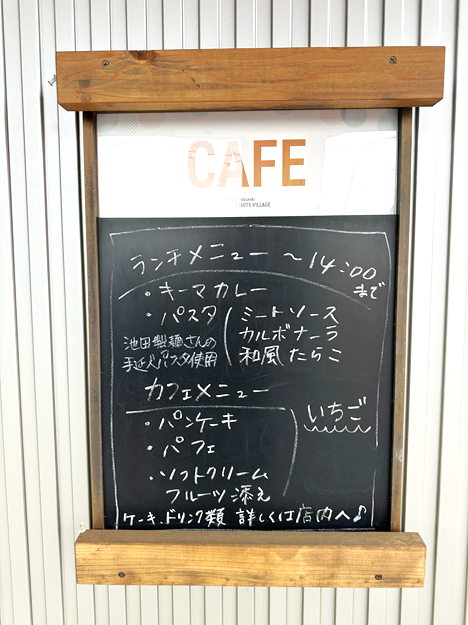 CAFE
UITS VILLAGE
ランチメニュー 〜14:00
まで
・キーマカレー
・パスタ ミートソース
カルボナーラ
和風たらこ
池田製麺さんの
手延べパスタ使用
カフェメニュー
・パンケーキ
いちご
・パフェ
・ソフトクリーム
フルーツ添え
ケーキ、ドリンク類 詳しくは店内へ♪